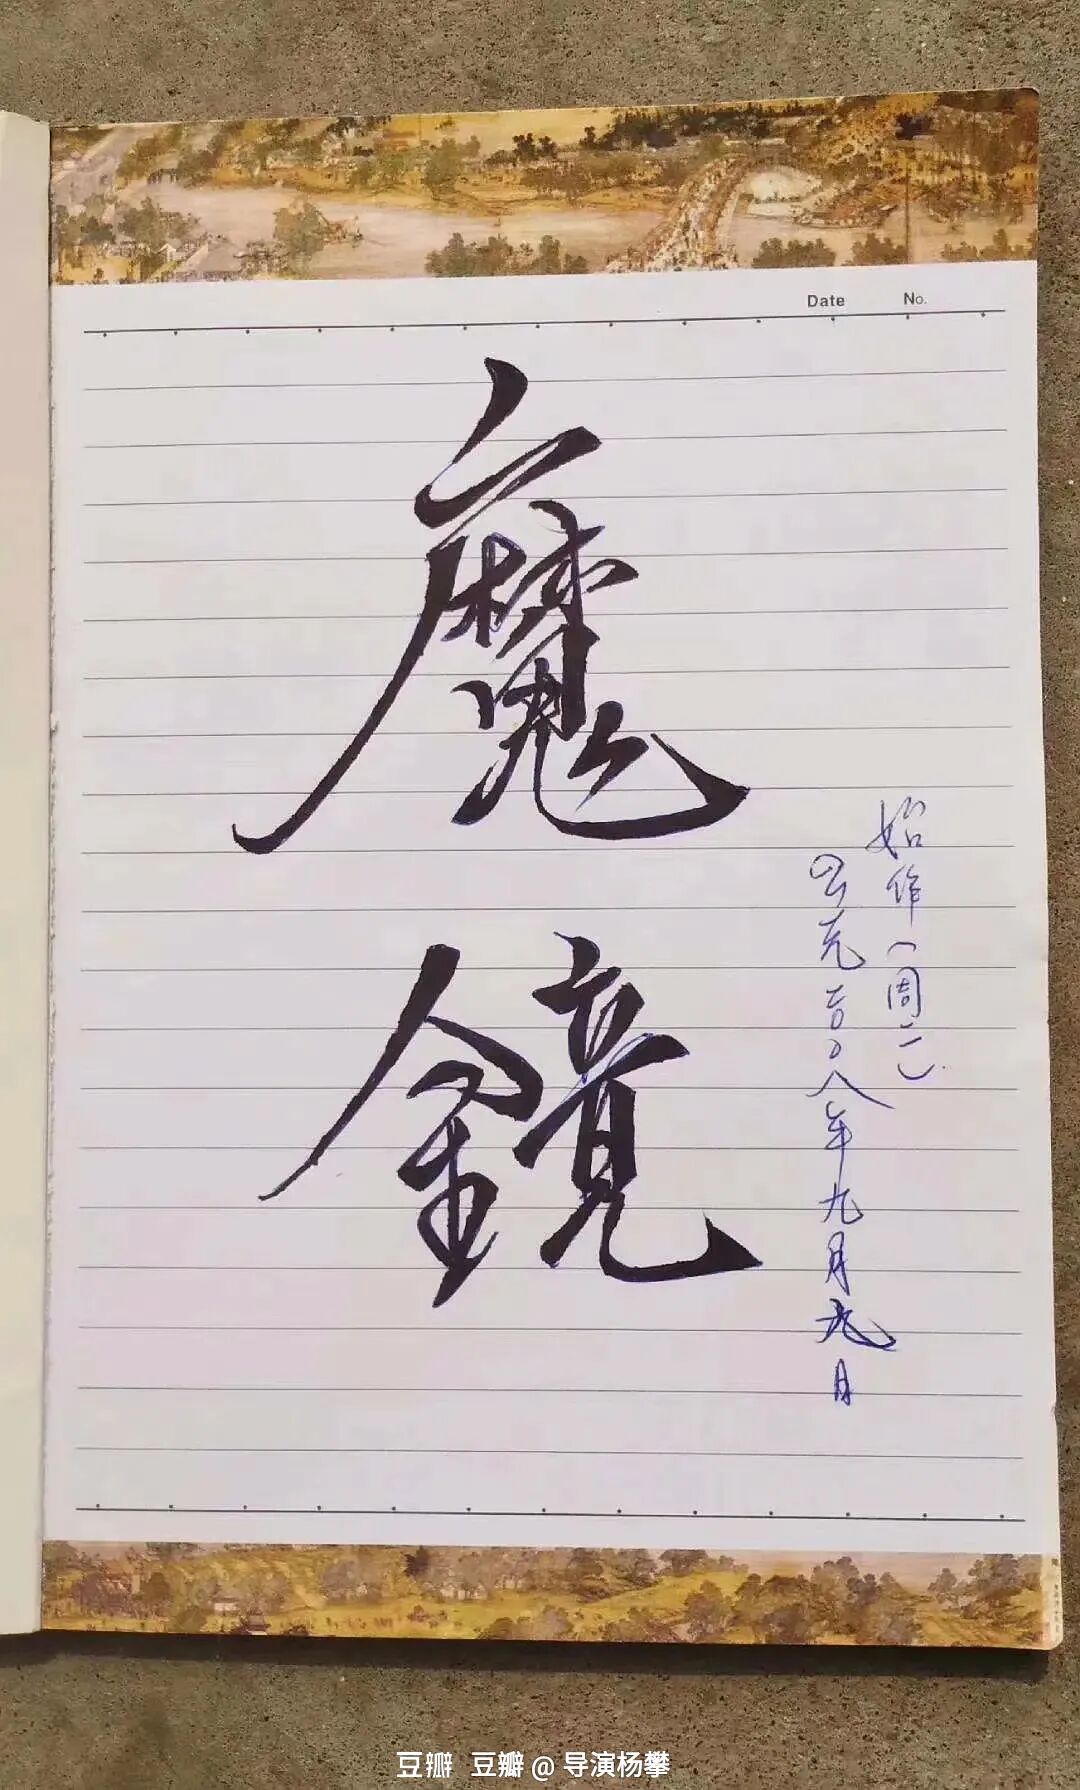 Date No.
魔
鏡
始作（周二）
公元二〇〇八年九月九日
豆瓣 豆瓣@导演杨攀